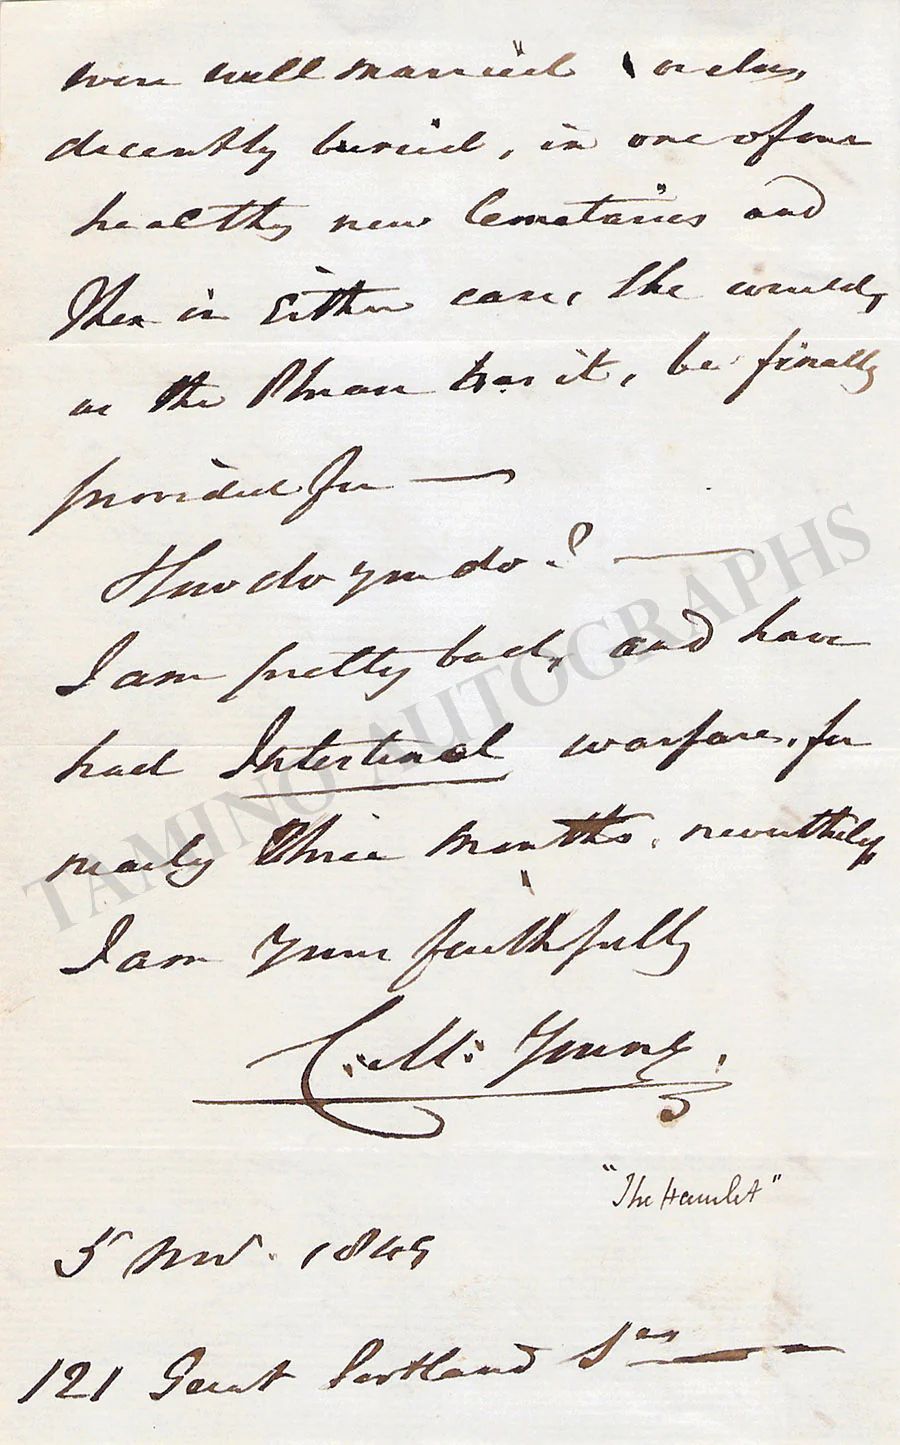 were well married or else,
decently buried, in one of our
healthy new Cemetaries and
Then in Either case, She would,
as the Phrase has it, be finally
provided for —
How do you do? —
I am pretty bad, and have
had Intestinal warfare, for
nearly Three Months, nevertheless,
I am Yours faithfully
C: M: Young.
"The Hamlet"
5 Nov. 1849
121 Great Portland St
TAMINO AUTOGRAPHS